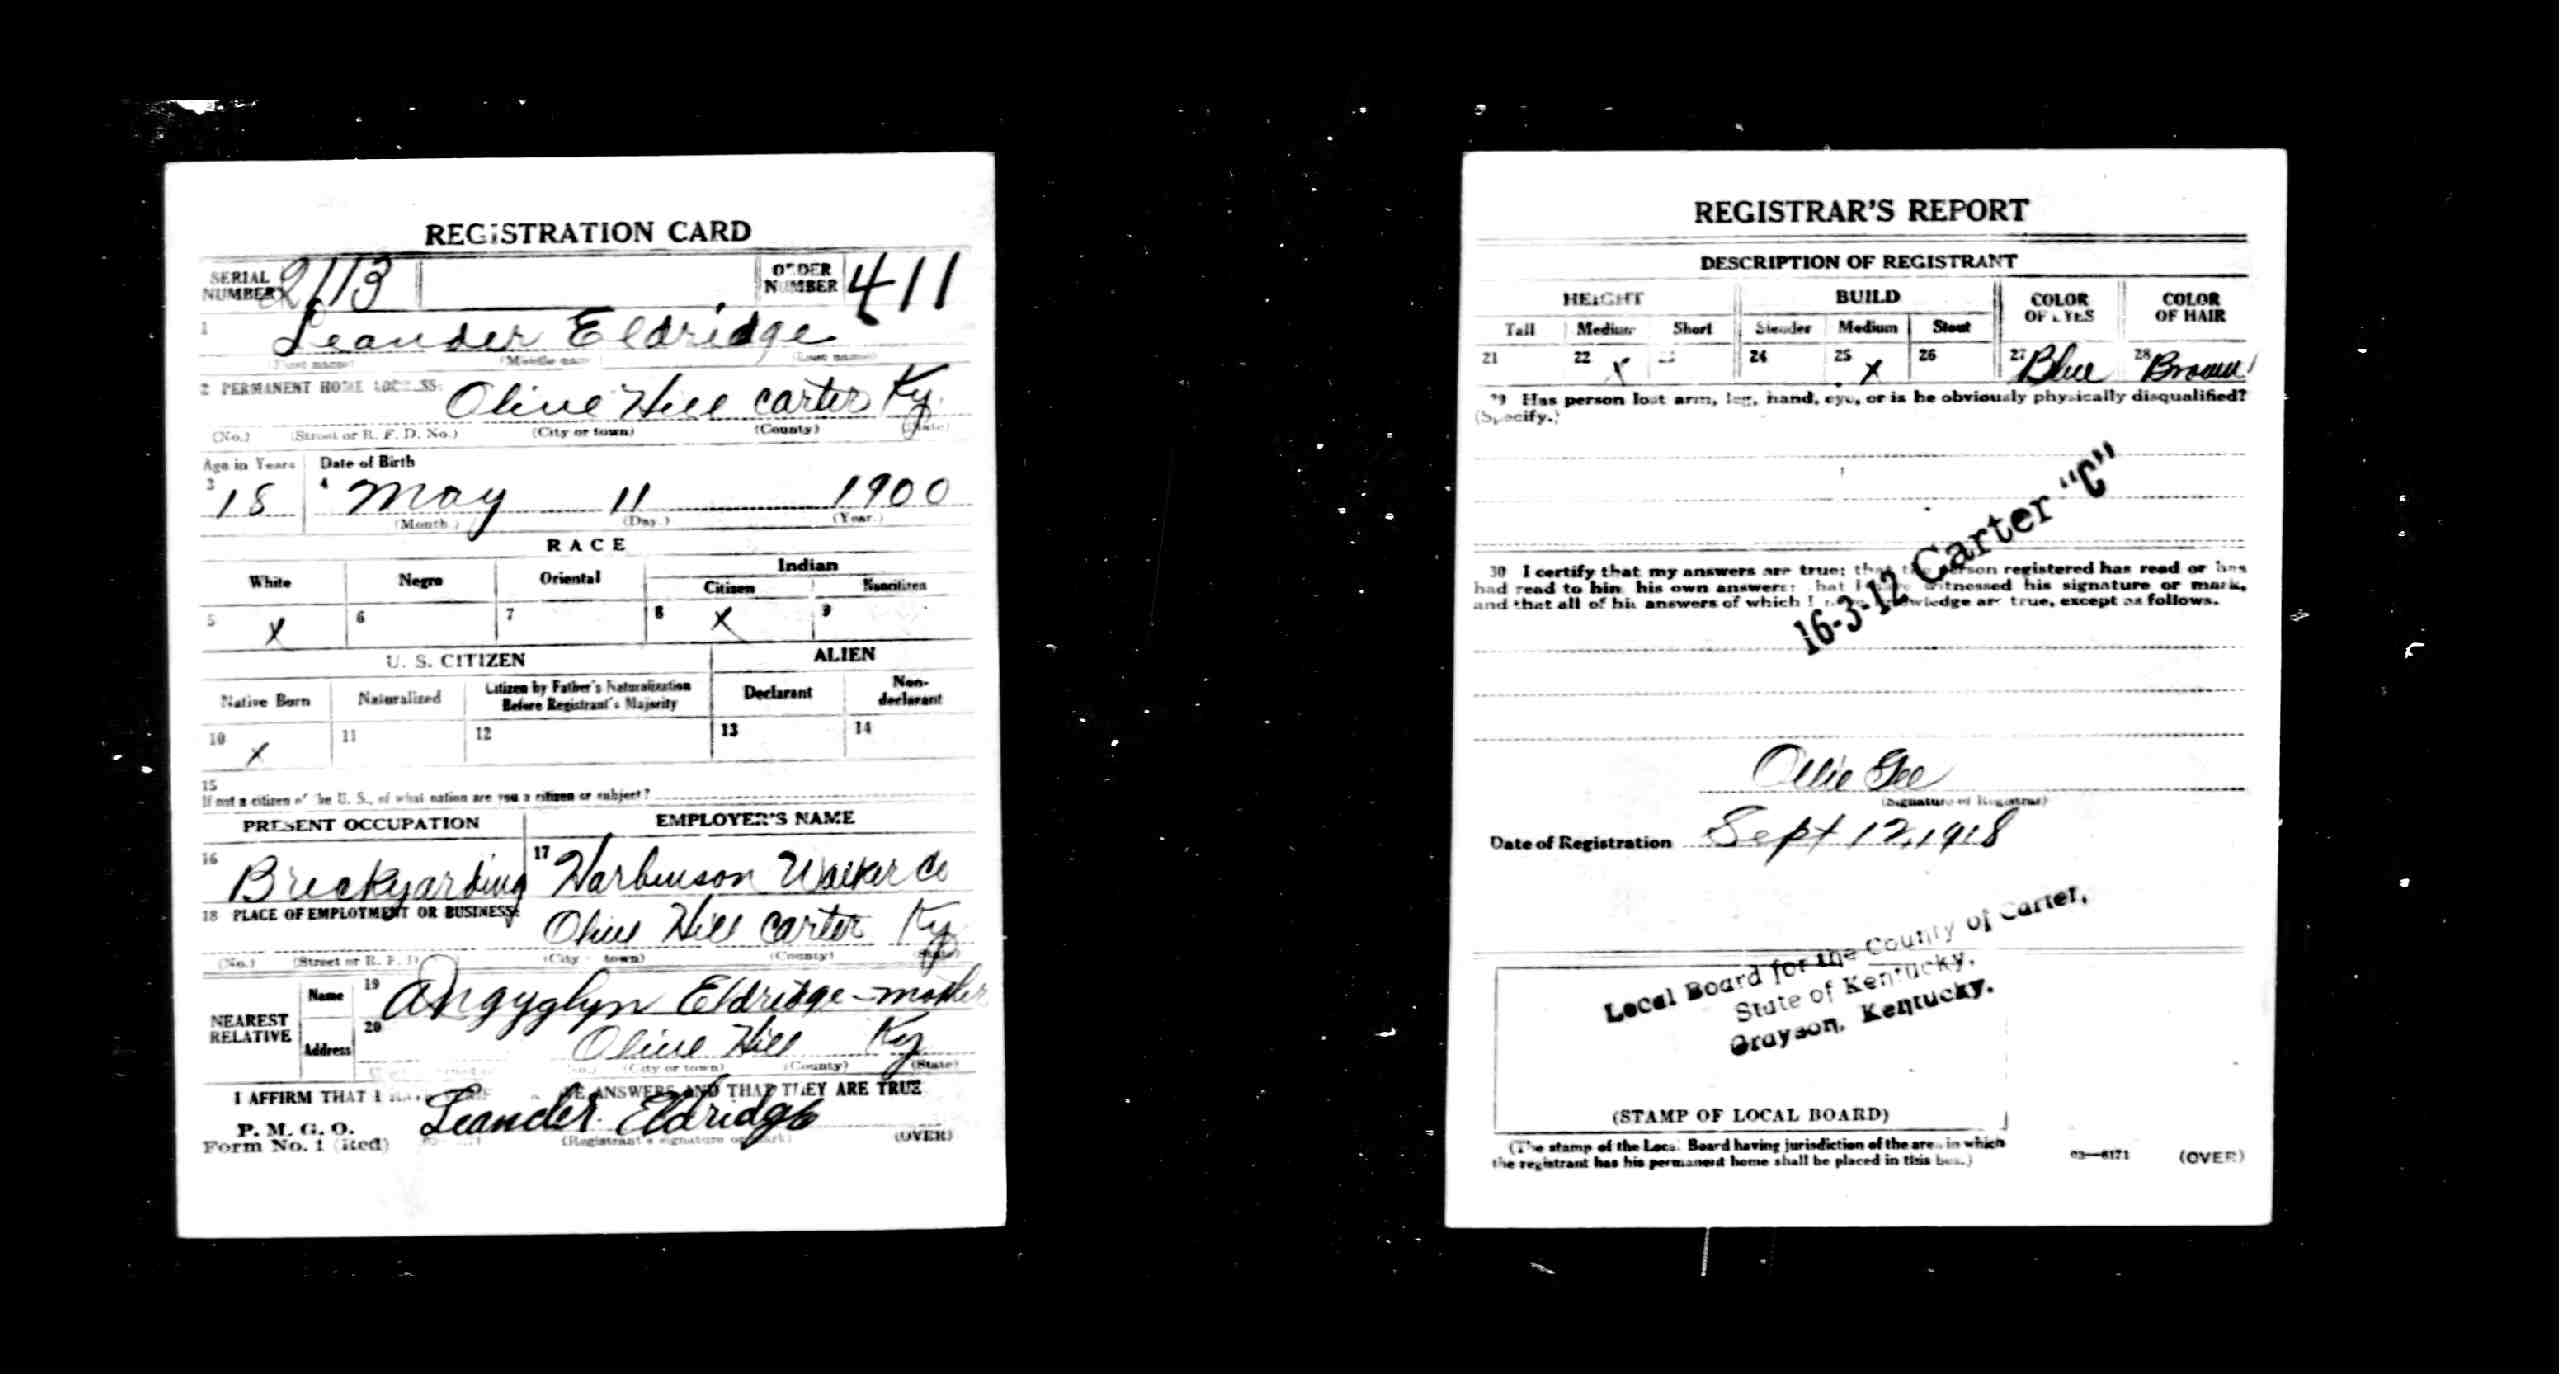 REGISTRATION CARD
SERIAL NUMBER 2113 ORDER NUMBER 411
1 Leander Eldridge
(First name) (Middle name) (Last name)
2 PERMANENT HOME ADDRESS: Olive Hill Carter Ky.
(No.) (Street or R. F. D. No.) (City or town) (County) (State)
Age in Years Date of Birth
3 18 4 May 11 1900
(Month.) (Day.) (Year.)
RACE
White Negro Oriental Indian
Citizen Noncitizen
5 X 6 7 8 X 9
U. S. CITIZEN ALIEN
Native Born Naturalized Citizen by Father's Naturalization Before Registrant's Majority Declarant Non-declarant
10 X 11 12 13 14
15
If not a citizen of the U. S., of what nation are you a citizen or subject?
PRESENT OCCUPATION EMPLOYER'S NAME
16 Brickyarding 17 Harbinson Walker Co
18 PLACE OF EMPLOYMENT OR BUSINESS: Olive Hill Carter Ky
(No.) (Street or R. F. D (City town) (County) (State)
NEAREST RELATIVE Name 19 Angyglyn Eldridge - mother
Address 20 Olive Hill Ky
(City or town) (County) (State)
I AFFIRM THAT I ANSWERS AND THAT THEY ARE TRUE
P. M. G. O.
Form No. 1 (Red) Leander Eldridge
(Registrant's signature or mark) (OVER)
REGISTRAR'S REPORT
DESCRIPTION OF REGISTRANT
HEIGHT BUILD COLOR OF EYES COLOR OF HAIR
Tall Medium Short Slender Medium Stout
21 22 X 24 25 X 26 27 Blue 28 Brown
29 Has person lost arm, leg, hand, eye, or is he obviously physically disqualified?
(Specify.)
16-3-12 Carter "C"
30 I certify that my answers are true; that the person registered has read or has
had read to him his own answers; that I have witnessed his signature or mark,
and that all of his answers of which I have knowledge are true, except as follows.
Ollie Gee
(Signature of Registrar)
Date of Registration Sept 12, 1918
Local Board for the County of Carter,
State of Kentucky,
Grayson, Kentucky.
(STAMP OF LOCAL BOARD)
(The stamp of the Local Board having jurisdiction of the area in which
the registrant has his permanent home shall be placed in this box.)
03—6171 (OVER)